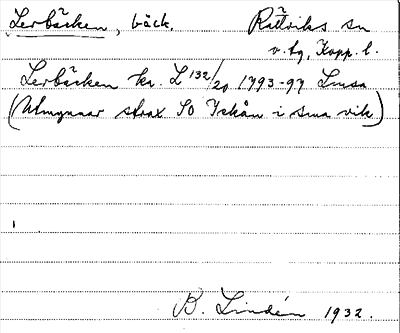 Lerbäcken, bäck. Rättviks sn
v. bg, Kopp. l.
Lerbäcken kr. L 132/20 1793-97 Lusa
(Utmynnar strax SO Iskån i sma vik)
B. Lindén 1932.